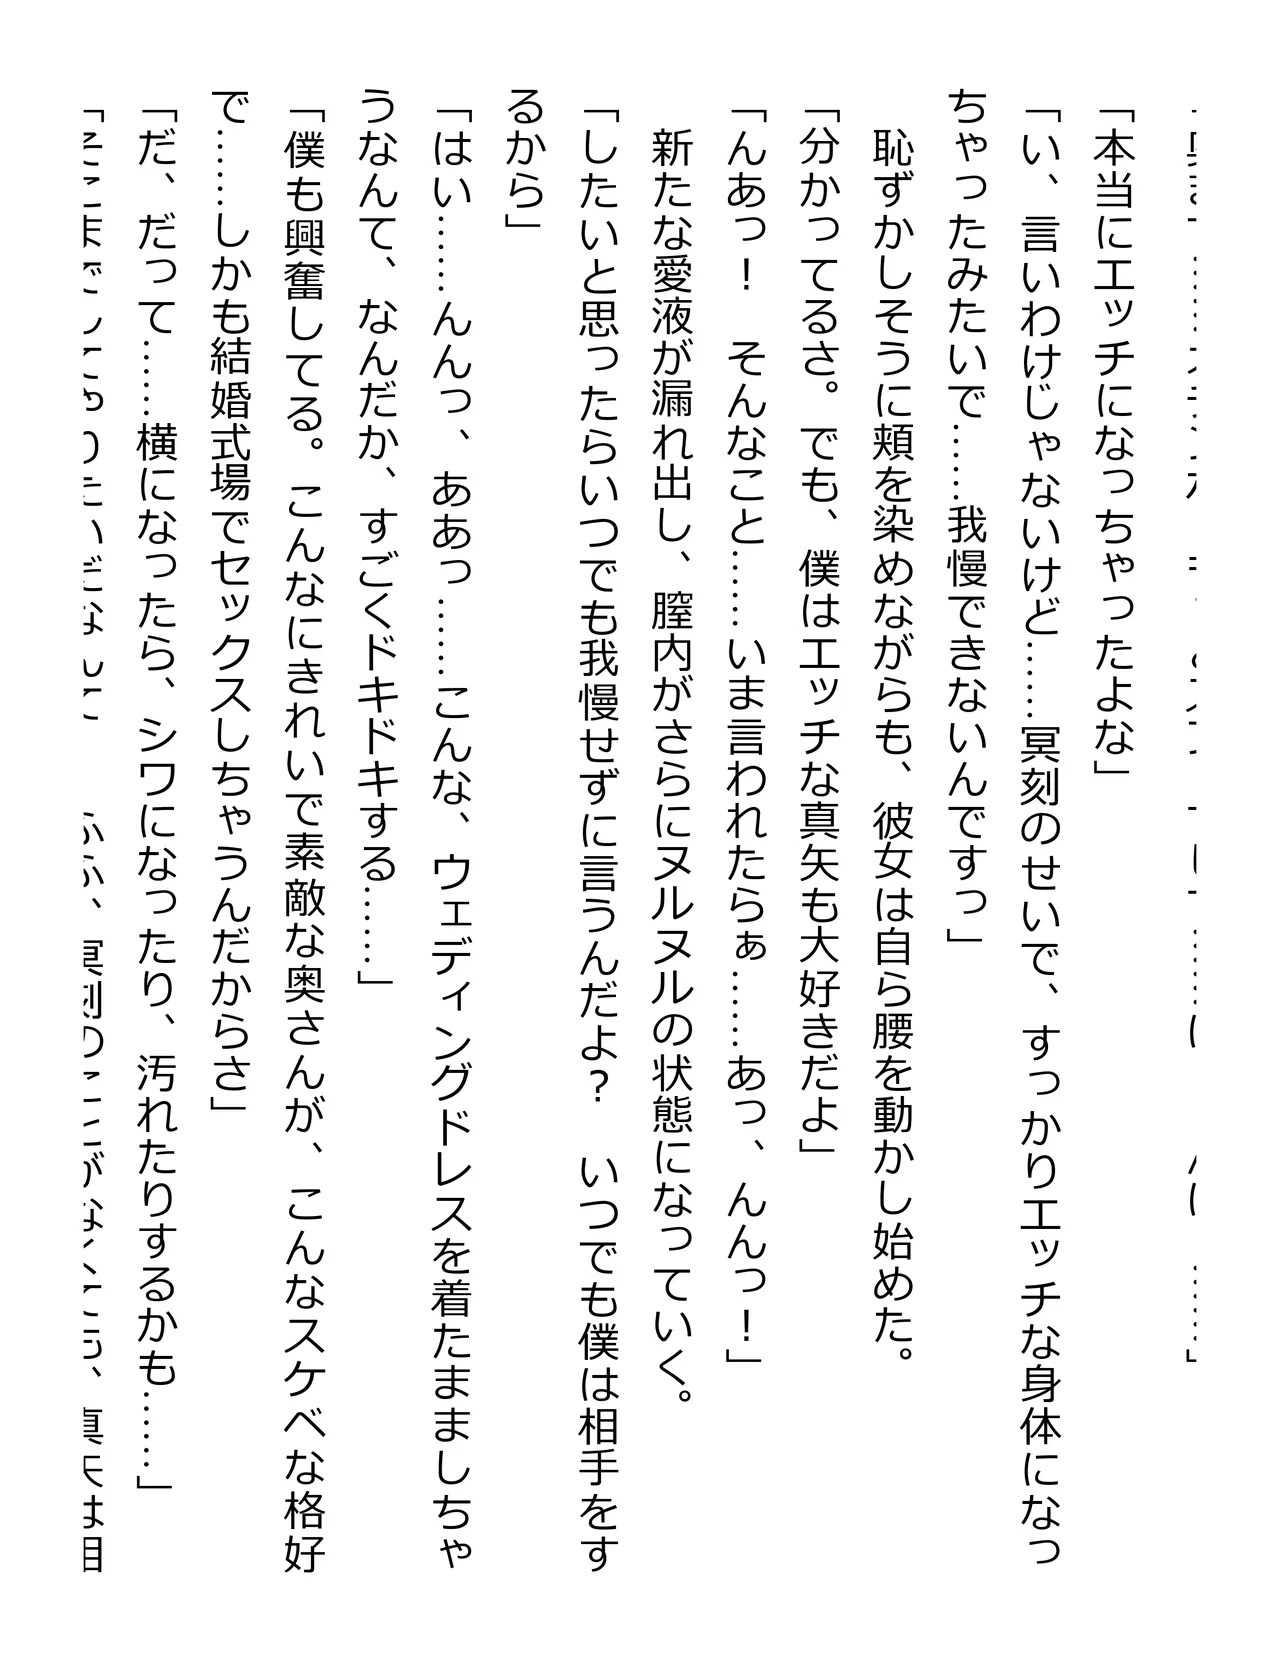 「本当にエッチになっちゃったよな」
「い、言いわけじゃないけど……冥刻のせいで、すっかりエッチな身体になっ
ちゃったみたいで……我慢できないんですっ」
　恥ずかしそうに頬を染めながらも、彼女は自ら腰を動かし始めた。
「分かってるさ。でも、僕はエッチな真矢も大好きだよ」
「んあっ！　そんなこと……いま言われたらぁ……あっ、んんっ！」
　新たな愛液が漏れ出し、膣内がさらにヌルヌルの状態になっていく。
「したいと思ったらいつでも我慢せずに言うんだよ？　いつでも僕は相手をす
るから」
「はい……んんっ、ああっ……こんな、ウェディングドレスを着たまましちゃ
うなんて、なんだか、すごくドキドキする……」
「僕も興奮してる。こんなにきれいで素敵な奥さんが、こんなスケベな格好
で……しかも結婚式場でセックスしちゃうんだからさ」
「だ、だって……横になったら、シワになったり、汚れたりするかも……」